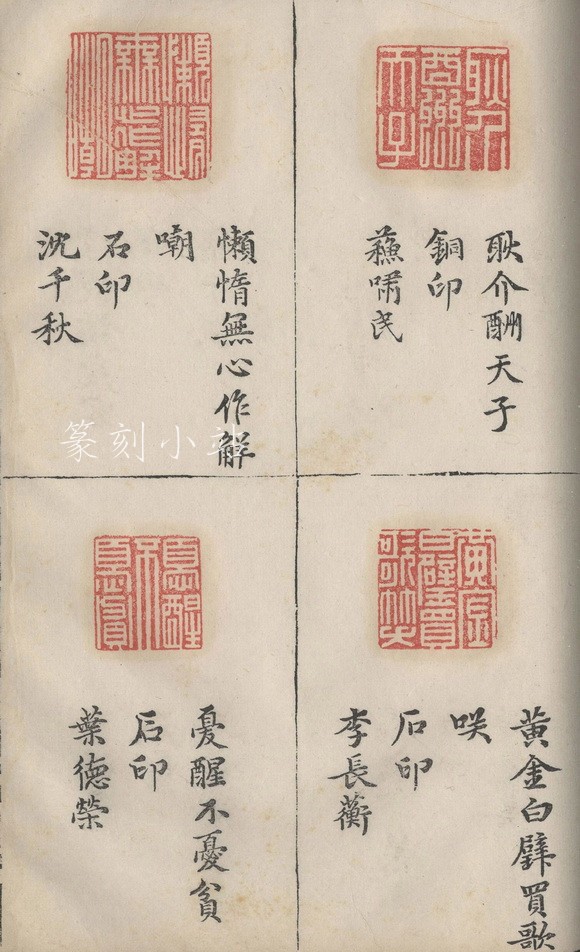 耿介酬天子
銅印
蘓嘯民
懶惰無心作解
嘲
石印
沈千秋
黃金白璧買歌
咲
石印
李長蘅
憂醒不憂貧
石印
葉德榮
篆刻小站